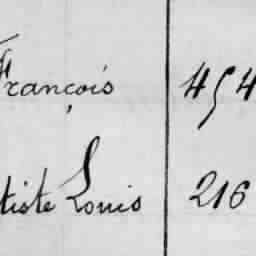 François 454
tiste Louis 216